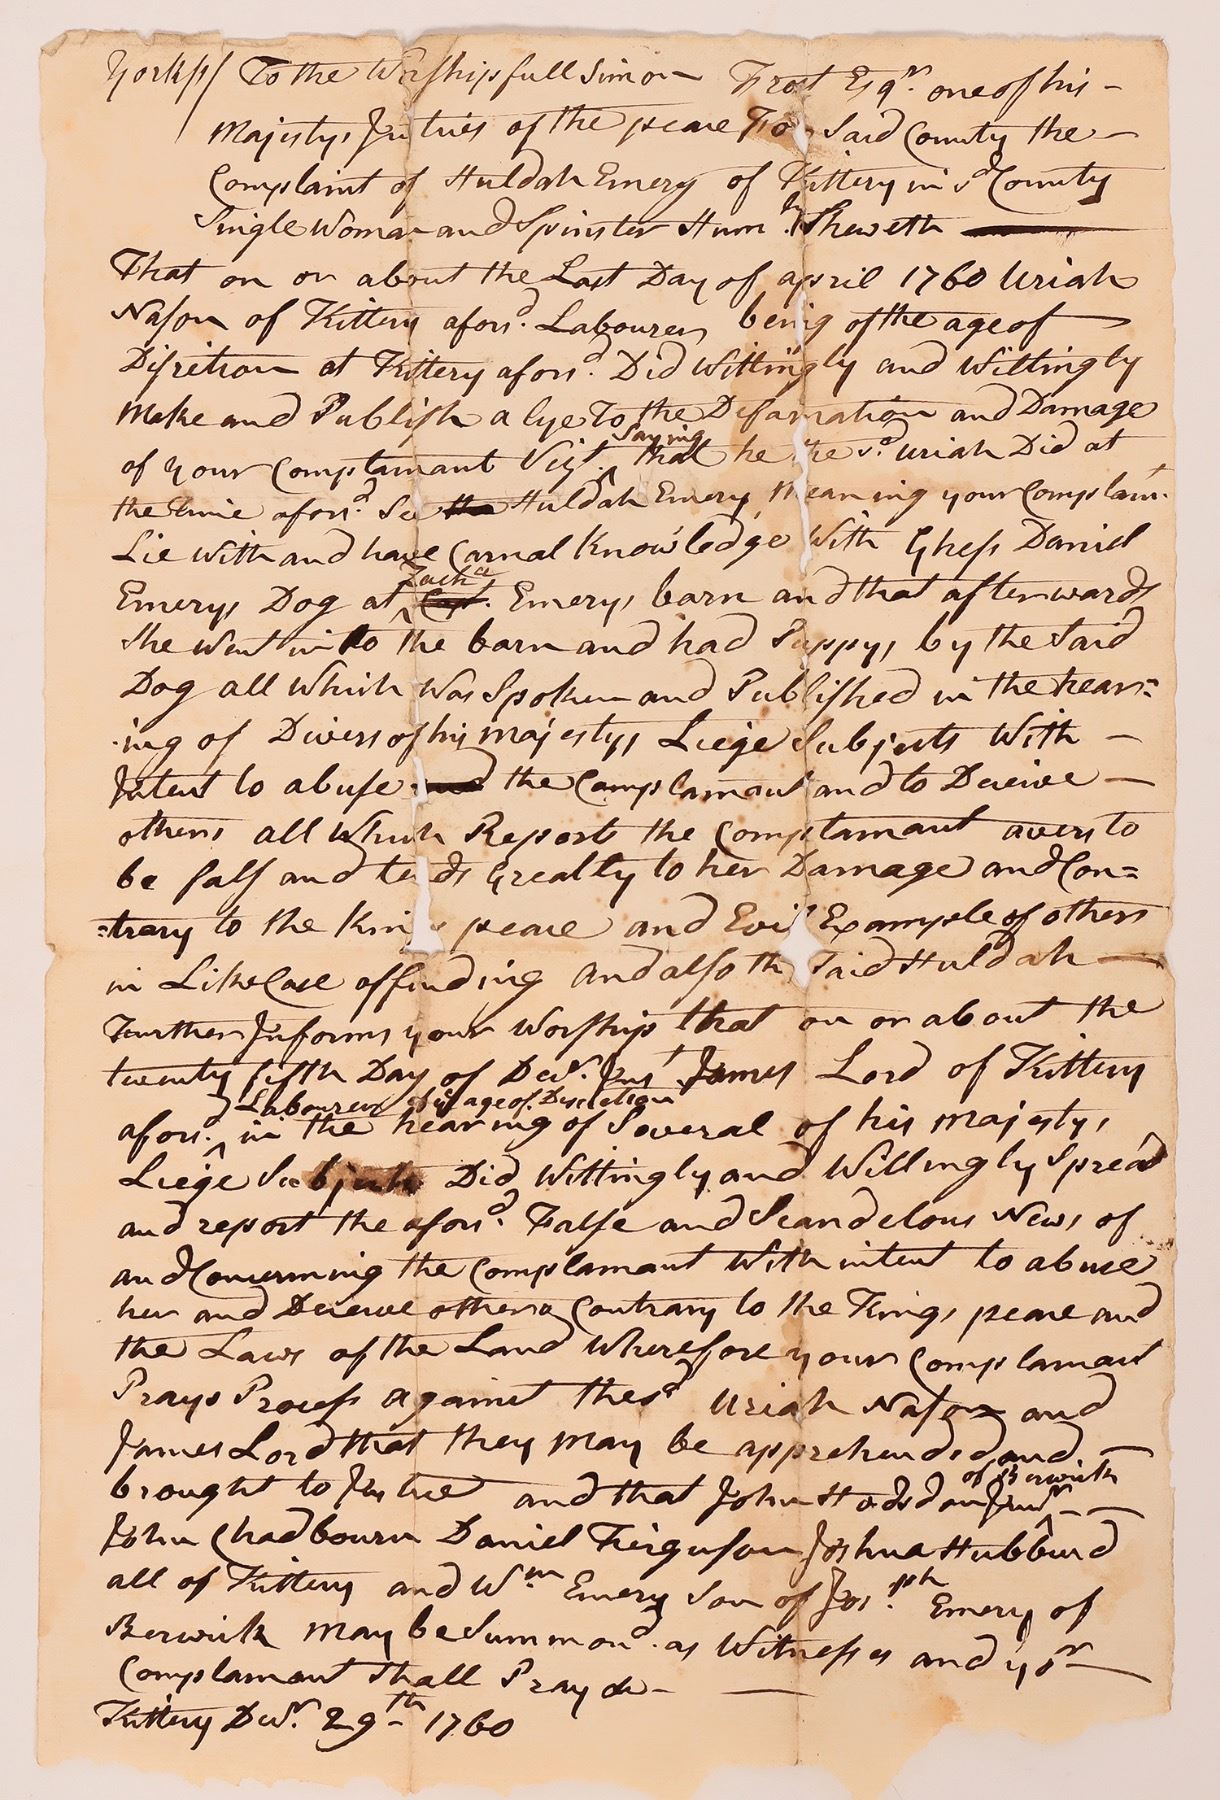 York ss/ To the Worshipfull Simon Frost Esqr. one of his -
Majestys Justies of the peace For Said County the -
Complaint of Huldah Emery of Kittery in sd County
Single Woman and Spinster Humly. Sheweth
That on or about the Last Day of april 1760 Uriah
Nason of Kittery aforsd. Labourer, being of the age of
Disretion at Kittery aforsd. Did Wittingly and Willingly
Make and Publish a lye To the Defamation and Damage
of your Complamant Vizt. Saying that he the sd. Uriah Did at
the time aforsd. See the Huldah Emery, Meaning your Complam.
Lie With and have Carnal Knowledge With Daniel
Emerys Dog at Capt. Zacha Emerys barn and that afterwards
She Went in to the barn and had Puppys by the Said
Dog all Which Was Spoken and Published in the hear=
ing of Divers of his majestys Liege Subjects With -
Intent to abuse and the Complamant and to Deceive -
others all Which Report the Complamant avers to
be fals and tends Greatly to her Damage and Con=
=trary to the Kings peace and Evil Example of others
in Like Case offending and also the Said Huldah -
Further Informs your Worship that on or about the
twenty fifth Day of Decr. Inst James Lord of Kittery
aforsd. Labourer of ye age of Discretion in the hearing of Several of his majestys
Liege Subjects Did Wittingly and Willingly Spread
and report the aforsd. False and Scandelous News of
and Concerning the Complamant With intent to abuse
her and Deceive others Contrary to the Kings peace and
the Laws of the Land Wherefore your Complamant
Prays Process against the sd Uriah Nason and
James Lord that they may be apprehended and -
brought to Justice and that John Hodsdon Junr of Berwick -
John Chadbourn Daniel Furguson Joshua Hubburd
all of Kittery and Wm. Emery Son of Jos.ph Emery of
Berwick may be Summond. as Witnesses and yor -
Complamant Shall Pray &c -
Kittery Decr. 29th 1760